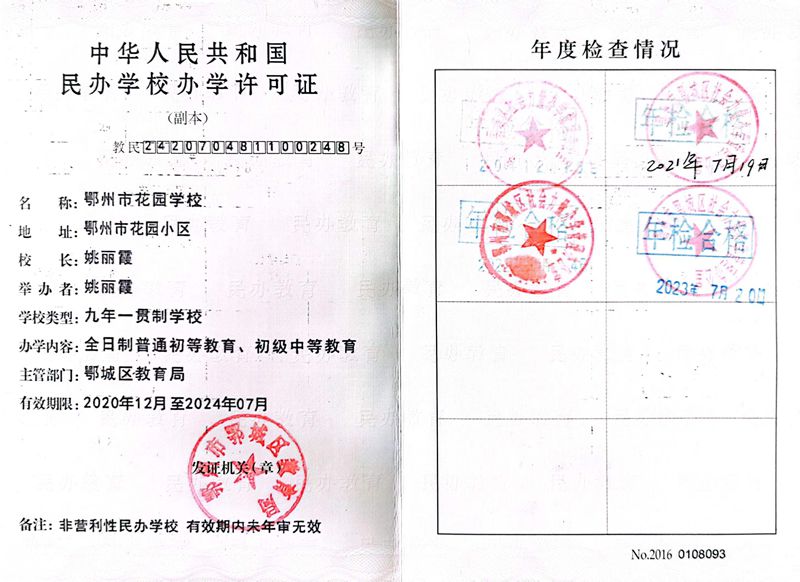 中华人民共和国
民办学校办学许可证
(副本)
教民242070481100248号
名 称:鄂州市花园学校
地 址:鄂州市花园小区
校 长:姚丽霞
举 办 者:姚丽霞
学校类型:九年一贯制学校
办学内容:全日制普通初等教育、初级中等教育
主管部门:鄂城区教育局
有效期限:2020年12月至2024年07月
鄂州市鄂城区教育局
发证机关(章)
备注:非营利性民办学校 有效期内未年审无效
年度检查情况
年检合格
2021年7月19日
年检合格
年检合格
2023年 7月20日
No.2016 0108093